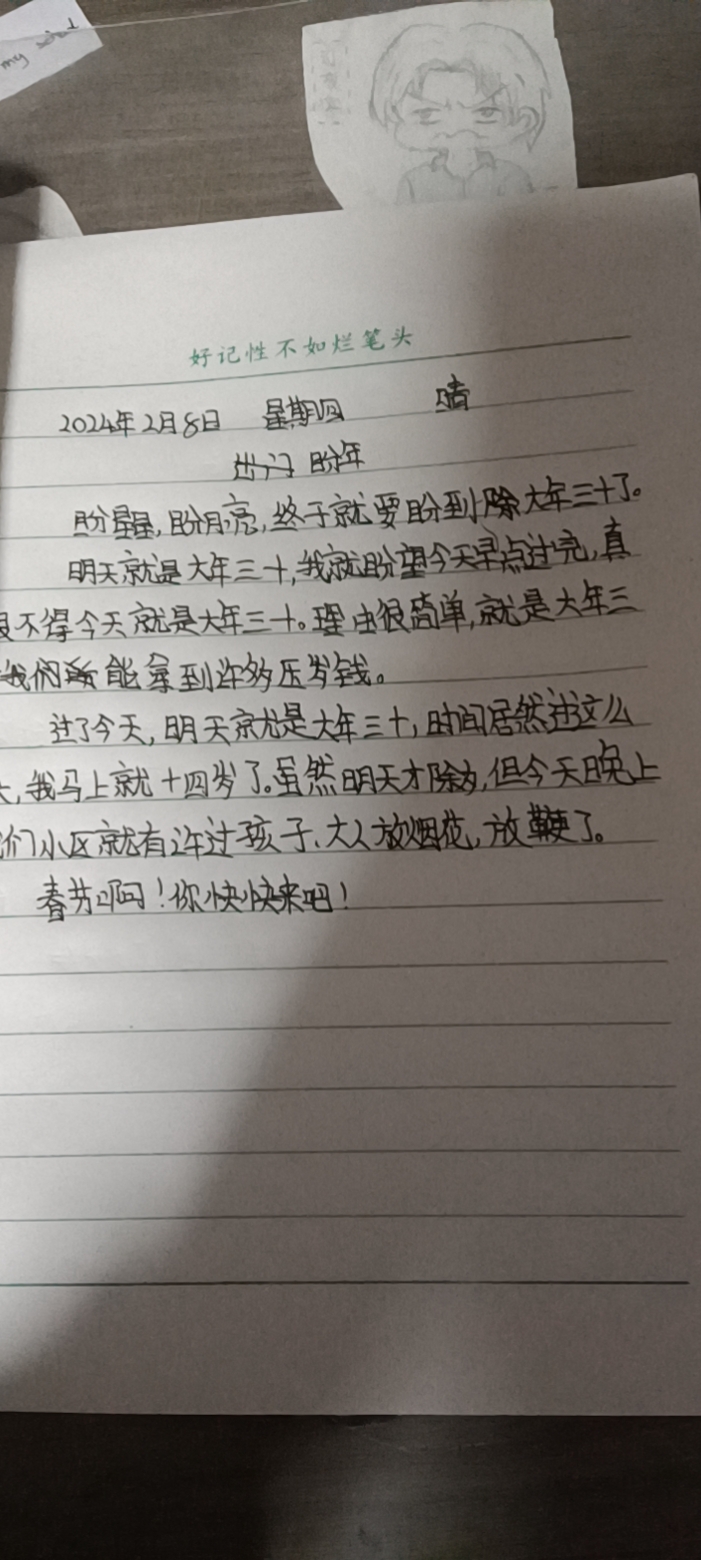 my
好记性不如烂笔头
2024年2月8日 星期四 晴
出门 盼年
盼星星,盼月亮,终于就要盼到除大年三十了。
明天就是大年三十,我就盼望今天早点过完,真
恨不得今天就是大年三十。理由很简单,就是大年三
我们 能拿到许多压岁钱。
过了今天,明天就是大年三十,时间居然过这么
我马上就十四岁了。虽然明天才除夕,但今天晚上
们小区就有许过孩子、大人放烟花,放鞭了。
春节啊!你快快来吧!